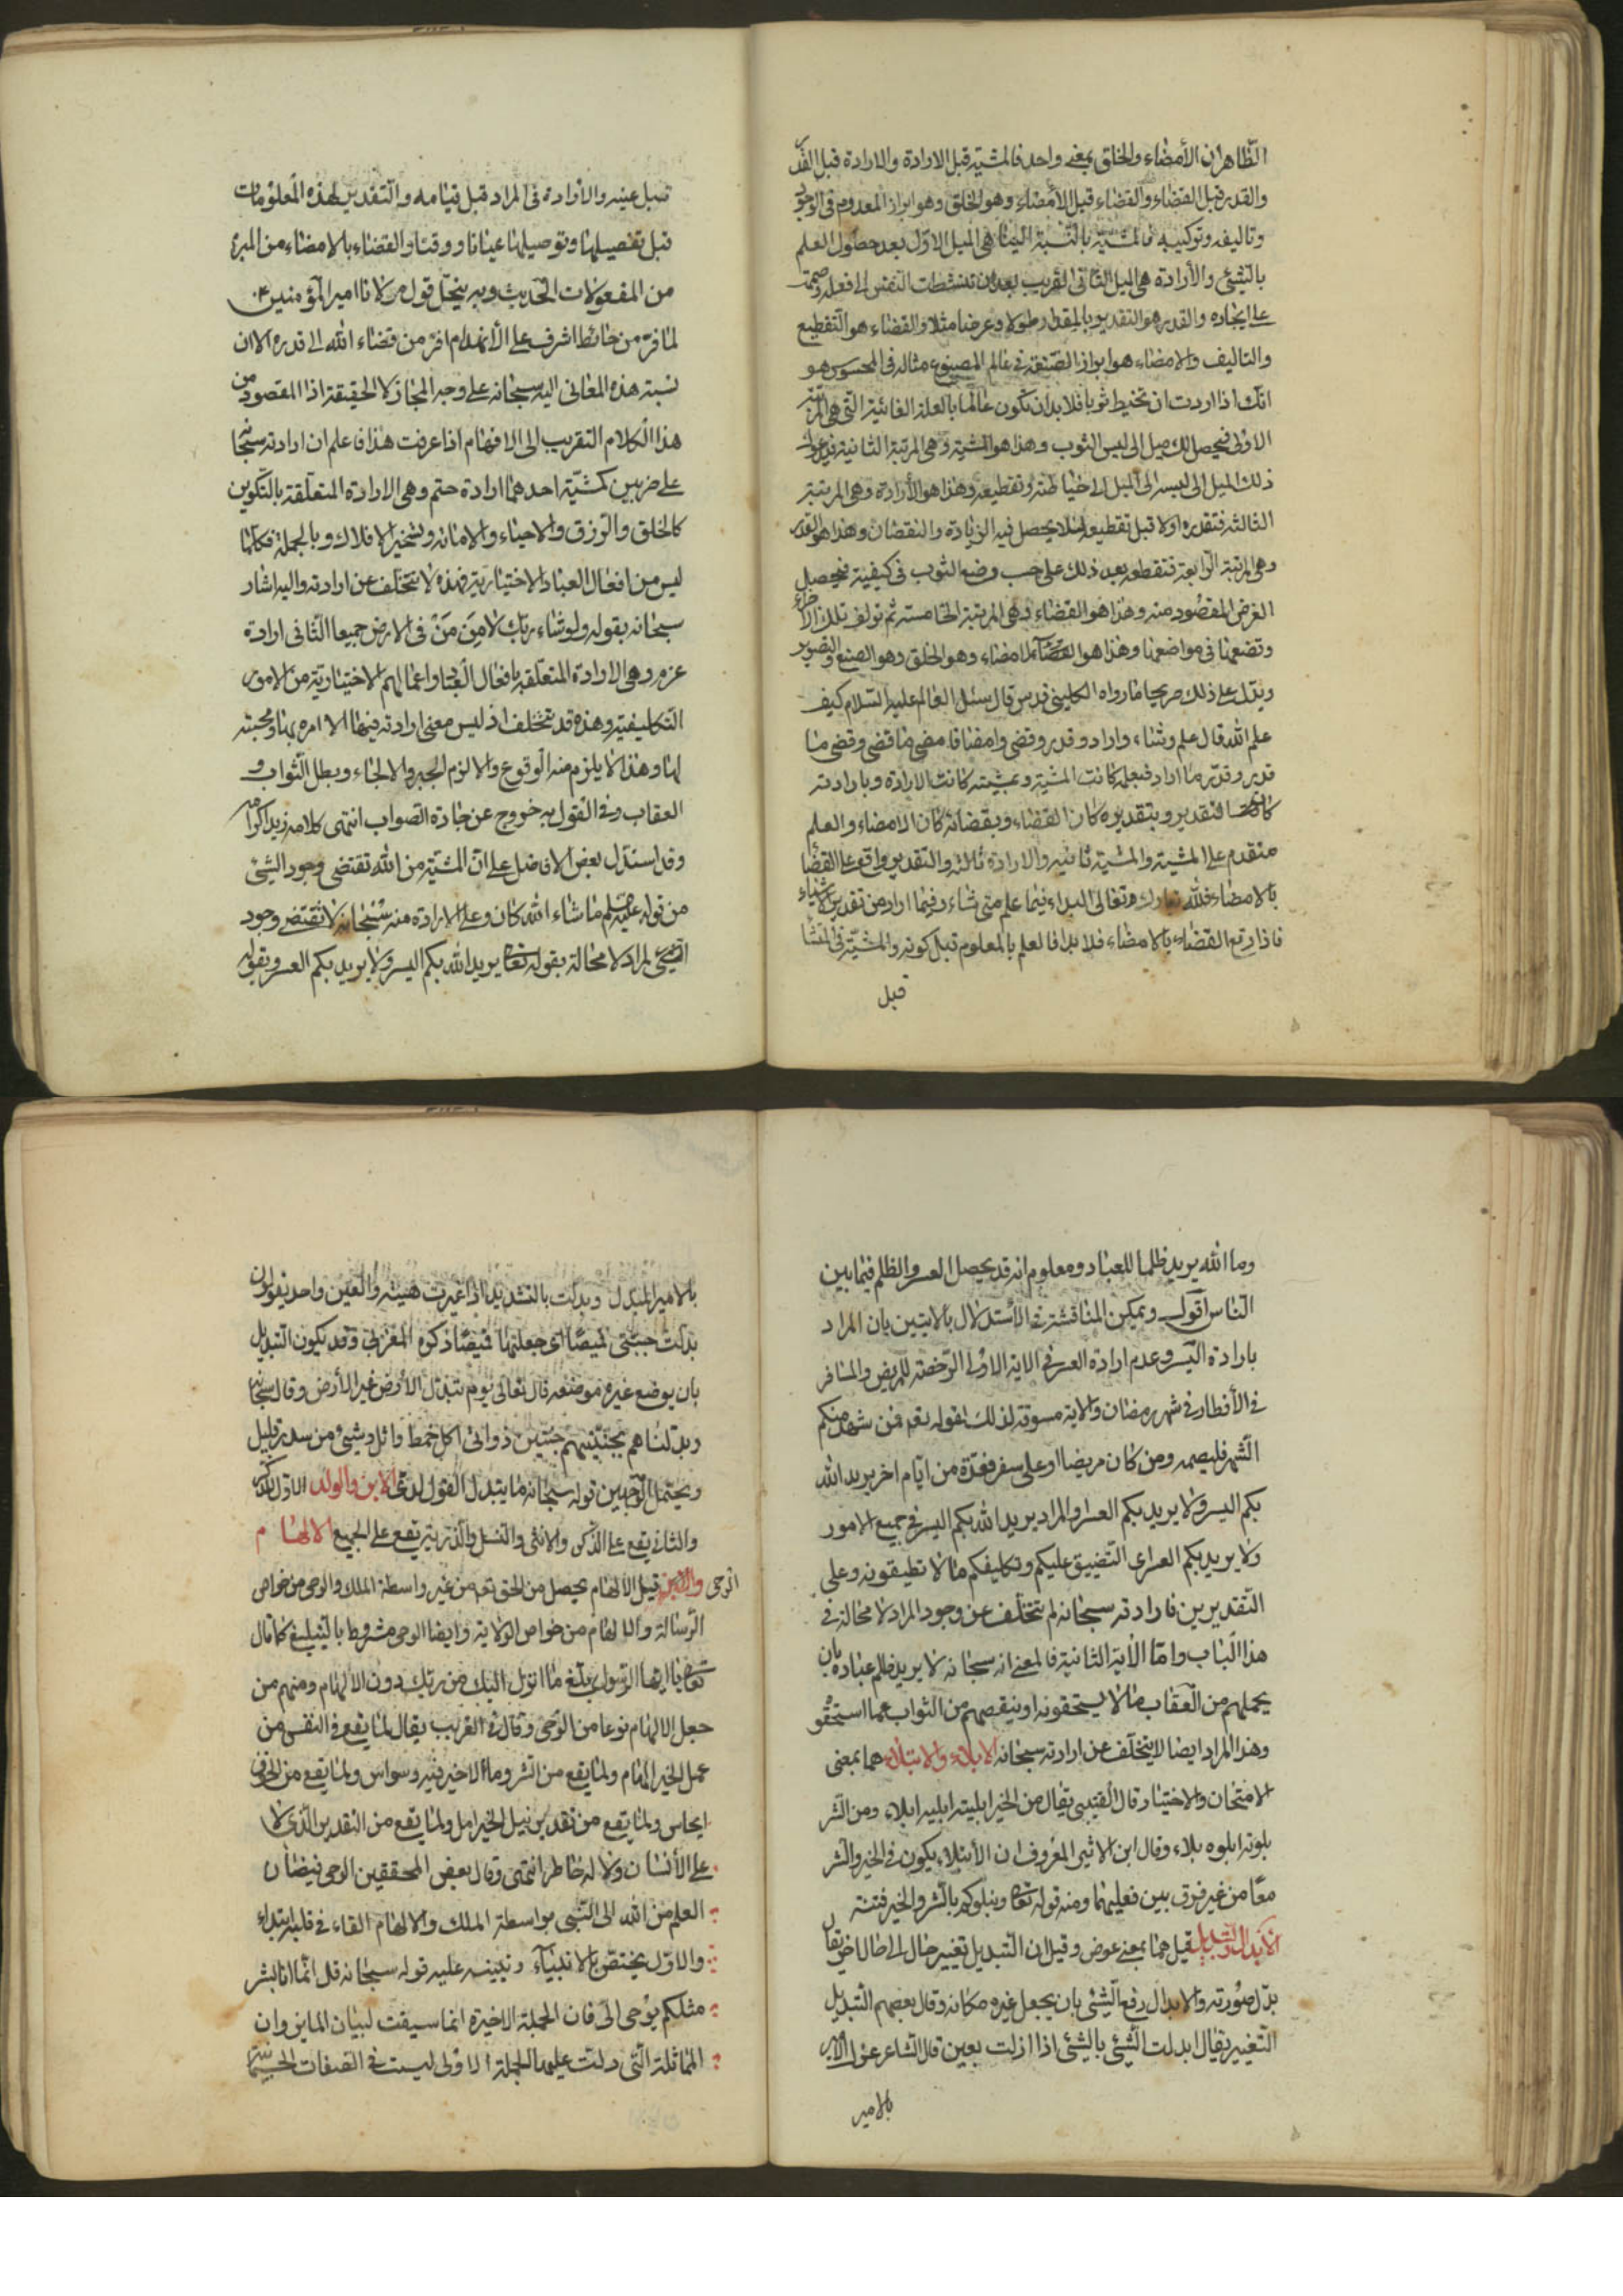 الظاهر ان الأمضاء والخلق بمعنى واحد فالمشية قبل الارادة والارادة قبل القدر
والقدر قبل القضاء والقضاء قبل الأمضاء وهو الخلق وهو ابراز المعدوم فى الوجود
وتاليفه وتركيبه فالمشية بالنسبة الينا هى الميل الاول بعد حصول العلم
بالشئ والأرادة هى الميل الثانى القريب بعد ان تنشطت النفس الى فعله وصممت
على ايجاده والقدر هو التقدير بالمقدار طولا وعرضا مثلا والقضاء هو التقطيع
والتاليف والامضاء هو ابراز الصنعة فى عالم المصنوع مثاله فى المحسوس هو
انك اذا اردت ان تخيط ثوبا فلا بد ان تكون عالما بالعلة الغائية التى هى المرتبة
الاولى فيحصل لك ميل الى لبس الثوب وهذا هو المشية وهى المرتبة الثانية فيدعوك
ذلك الميل الى لبسه الى الميل الى خياطته وتقطيعه وهذا هو الأرادة وهى المرتبة
الثالثة فتقدره اولا قبل تقطيعه لئلا يحصل فيه الزيادة والنقصان وهذا هو القدر
وهى المرتبة الرابعة فتقطعه بعد ذلك على حسب وضع الثوب فى كيفية فيحصل
الغرض المقصود منه وهذا هو القضاء وهى المرتبة الخامسة ثم تولف تلك الاجزاء
وتضعها فى مواضعها وهذا هو الامضاء وهو الخلق وهو الصنع والتصوير
ويدل على ذلك صريحا ما رواه الكلينى قدس قال سئل العالم عليه السلام كيف
علم الله قال علم وشاء واراد وقدر وقضى وامضا فامضى ما قضى وقضى ما
قدر وقدر ما اراد فبعلمه كانت المشية وبمشيته كانت الارادة وبارادته
كان التقدير وبتقديره كان القضاء وبقضائه كان الامضاء والعلم
متقدم على المشية والمشية ثانيه والارادة ثالثه والتقدير واقع على القضا
بالامضاء فلله تبارك وتعالى البداء فيما علم متى شاء وفيما اراد من تقدير الاشياء
فاذا وقع القضاء بالامضاء فلا بدا فالعلم بالمعلوم قبل كونه والمشية فى المنشا
قبل
قبل عينه والارادة فى المراد قبل قيامه والتقدير لهذه المعلومات
قبل تفصيلها وتوصيلها عيانا ووقتا والقضاء بالامضاء من المبرم
من المفعولات الحديث وبه ينحل قول مولانا امير المؤمنين ع
لما فر من حائط اشرف على الأنهدام افر من قضاء الله الى قدره الا ان
نسبة هذه المعانى اليه سبحانه على وجه المجاز لا الحقيقة اذا المقصود من
هذا الكلام التقريب الى الافهام اذا عرفت هذا فاعلم ان ارادته سبحانه
على ضربين كمشيته احدهما ارادة حتم وهى الارادة المتعلقة بالتكوين
كالخلق والرزق والاحياء والاماته وتسخير الافلاك وبالجملة فكلما
ليس من افعال العباد الاختياريه فهذه لا تتخلف عن ارادته واليه اشار
سبحانه بقوله ولو شاء ربك لامن من فى الارض جميعا الثانى ارادة
عزم وهى الارادة المتعلقه بافعال العباد واعمالهم الاختيارية من الامور
التكليفية وهذه قد تتخلف اذ ليس معنى ارادته فيها الا امره بها ومحبته
لها وهذا لا يلزم منه الوقوع والا لزم الجبر والالجاء وبطل الثواب و
العقاب وفى القول به خروج عن جادة الصواب انتهى كلامه زيد اكرامه
وقد استدل بعض الافاضل على ان المشية من الله تقتضى وجود الشئ
من قوله صلعم ما شاء الله كان وعلى الارادة منه سبحانه لا تقتضى وجود
الشئ المراد لا محالة بقوله تعالى يريد الله بكم اليسر ولا يريد بكم العسر وبقوله
وما الله يريد ظلما للعباد ومعلوم انه قد يحصل العسر والظلم فيما بين
الناس اقول ويمكن المناقشة فى الأستدلال بالايتين بان المراد
بارادة اليسر وعدم ارادة العسر فى الاية الاولى الرخصة للمريض والمسافر
فى الأفطار فى شهر رمضان والاية مسوقة لذلك لقوله تعم فمن شهد منكم
الشهر فليصمه ومن كان مريضا او على سفر فعدة من ايام اخر يريد الله
بكم اليسر ولا يريد بكم العسر او المراد يريد الله بكم اليسر فى جميع الامور
ولا يريد بكم العسر اى التضييق عليكم وتكليفكم ما لا تطيقونه وعلى
التقديرين فارادته سبحانه لم تتخلف عن وجود المراد لا محالة فى
هذا الباب واما الأية الثانية فالمعنى انه سبحانه لا يريد ظلم عباده بان
يحملهم من العقاب ما لا يستحقونه او ينقصهم من الثواب عما استحقو
وهذا المراد ايضا لا يتخلف عن ارادته سبحانه الابلاء والابتلاء هما بمعنى
الامتحان والاختيار قال القتيبى يقال من الخير ابليته ابليه ابلاء ومن الشر
بلوته ابلوه بلاء وقال ابن الاثير المعروف ان الأبتلاء يكون فى الخير والشر
معا من غير فرق بين فعليهما ومنه قوله تعالى ونبلوكم بالشر والخير فتنة
الابدال والتبديل قيل هما بمعنى عوض وقيل ان التبديل تغيير حال الى حال اخر يقال
بدل صورته والابدال رفع الشئ بان يجعل غيره مكانه وقال بعضهم التبديل
التغيير يقال ابدلت الشئ بالشئ اذا ازلت بعين قال الشاعر عزل الامير
بالامير
بالامير المبدل وبدلت بالتشديد اذا غيرت هيئته والعين واحد يقولون
بدلت جبتى قميصا اى جعلتها قميصا ذكره المغربى وقد يكون التبديل
بان يوضع غيره موضعه قال تعالى يوم تبدل الأرض غير الأرض وقال سبحانه
وبدلناهم بجنتيهم جنتين ذواتى اكل خمط واثل وشئ من سدر قليل
ويحتمل الوجهين قوله سبحانه ما يبدل القول لدى الابن والولد الاول للذكر
والثانى يقع على الذكر والانثى والنسل والذريه يقع على الجميع الالهام
الوحى قيل الالهام يحصل من الحق تعم من غير واسطة الملك والوحى من خواص
الرسالة والالهام من خواص الولاية وايضا الوحى مشروط بالتبليغ كما قال
تعالى يا ايها الرسول بلغ ما انزل اليك من ربك دون الالهام ومنهم من
جعل الالهام نوعا من الوحى وقال فى الغريب يقال لما يقع فى النفس من
عمل الخير الهام ولما يقع من الشر وما لا خير فيه وسواس ولما يقع من الخوف
ايحاس ولما يقع من تقدير نيل الخير امل ولما يقع من التقدير الذى لا
على الأنسان ولا له خاطر انتهى وقال بعض المحققين الوحى فيضان
العلم من الله الى النبى بواسطة الملك والالهام القاء فى قلبه ابتداء
والاول يختص بالانبياء ويبينه عليه قوله سبحانه قل انما انا بشر
مثلكم يوحى الى فان الجملة الاخيرة انما سيقت لبيان المايز وان
المماثلة التى دلت عليها الجملة الاولى ليست فى الصفات الجسمية